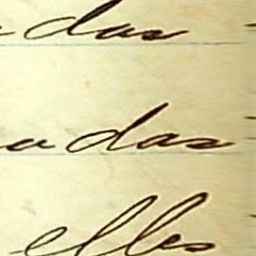 das
a das
elles